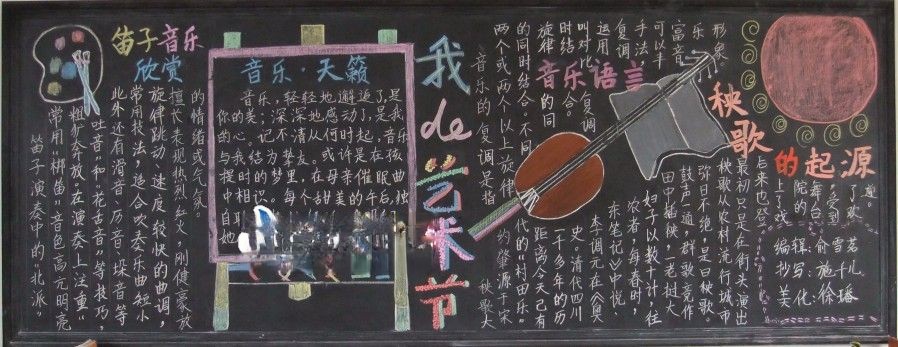 笛子音乐
欣赏
笛子演奏中的“北派”
常用梆笛，音色高亢明亮
粗犷奔放。在演奏上注重“
吐音”和“花舌音”等技巧，
此外还有滑音，历音，垛音等
常用技法，适合吹奏乐曲短小
旋律跳动，速度较快的曲调，
擅长表现热烈红火，刚健豪放
的情绪或气氛。
音乐·天籁
音乐，轻轻地邂逅了，是
你的美；深深地感动了，是我
的心。记不清从何时起，音乐
与我结为挚友。或许是在弦
提时的梦里，在母亲催眠曲
中相识。每个甜美的午后，独
自
她
我de艺术节
音乐语言
音乐的复调是指
两个或两个以上旋律
的同时结合。不同
旋律的同
时结合。
叫对比复调
运用
复调
手法
可以丰
富音
乐
形象。
秧歌
的起源
秧歌大
约肇源于宋
代的“村田乐”
距离今天已有
一千多年的历
史。清代四川
李调元在《粤
东笔记》中说：
农者，每春时，
妇子以数十计，往
田中插秧，一老挝大
鼓声一通，群歌竞作
弥日不绝，是曰秧歌。
秧歌从农村流行城市
最初只是在街头演出
后来也登
上了戏
院的
舞台，
受到
了欢
迎。
编辑：俞雪
抄写：施儿
美化：徐璠